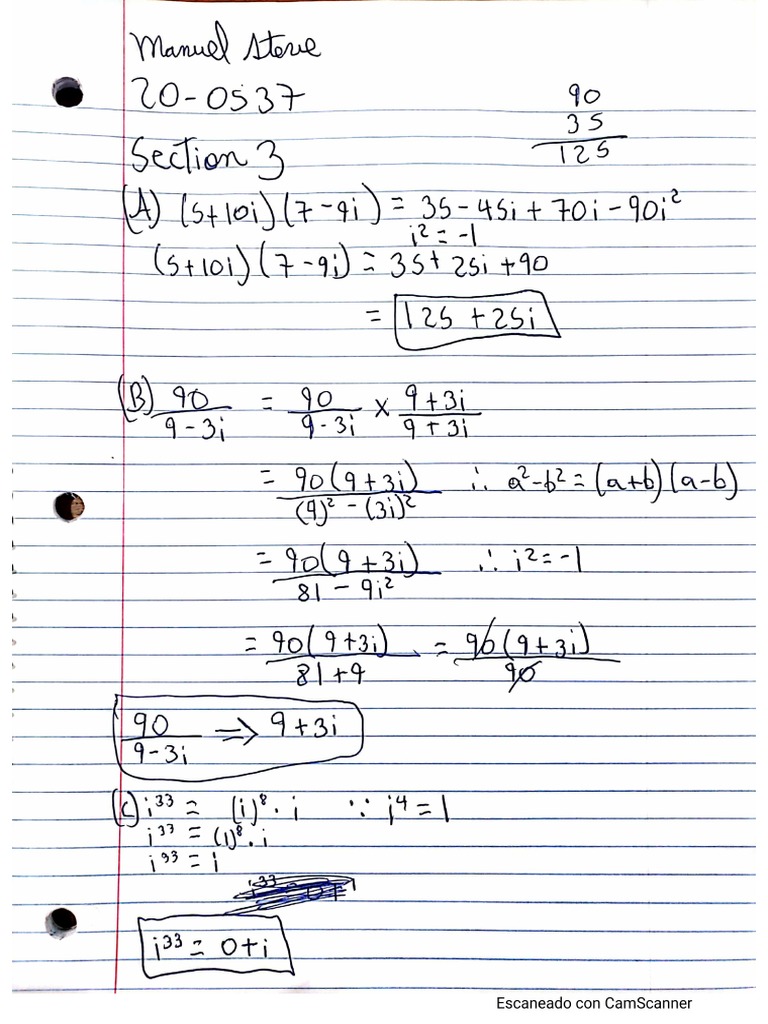 Manuel Steve
20-0537
90
35
125
Section 3
(A) (5+10i)(7-9i) = 35-45i+70i-90i²
i² = -1
(5+10i)(7-9i) = 35+25i+90
= 125+25i
(B) 90/(9-3i) = 90/(9-3i) × (9+3i)/(9+3i)
= 90(9+3i)/((9)²-(3i)²) ∴ a²-b² = (a+b)(a-b)
= 90(9+3i)/(81-9i²) ∴ i² = -1
= 90(9+3i)/(81+9) = 90(9+3i)/90
90/(9-3i) ⇒ 9+3i
(C) i³³ = (i)⁸·i ∵ i⁴ = 1
i³³ = (1)⁸·i
i³³ = i
i³³ = 0+i
Escaneado con CamScanner